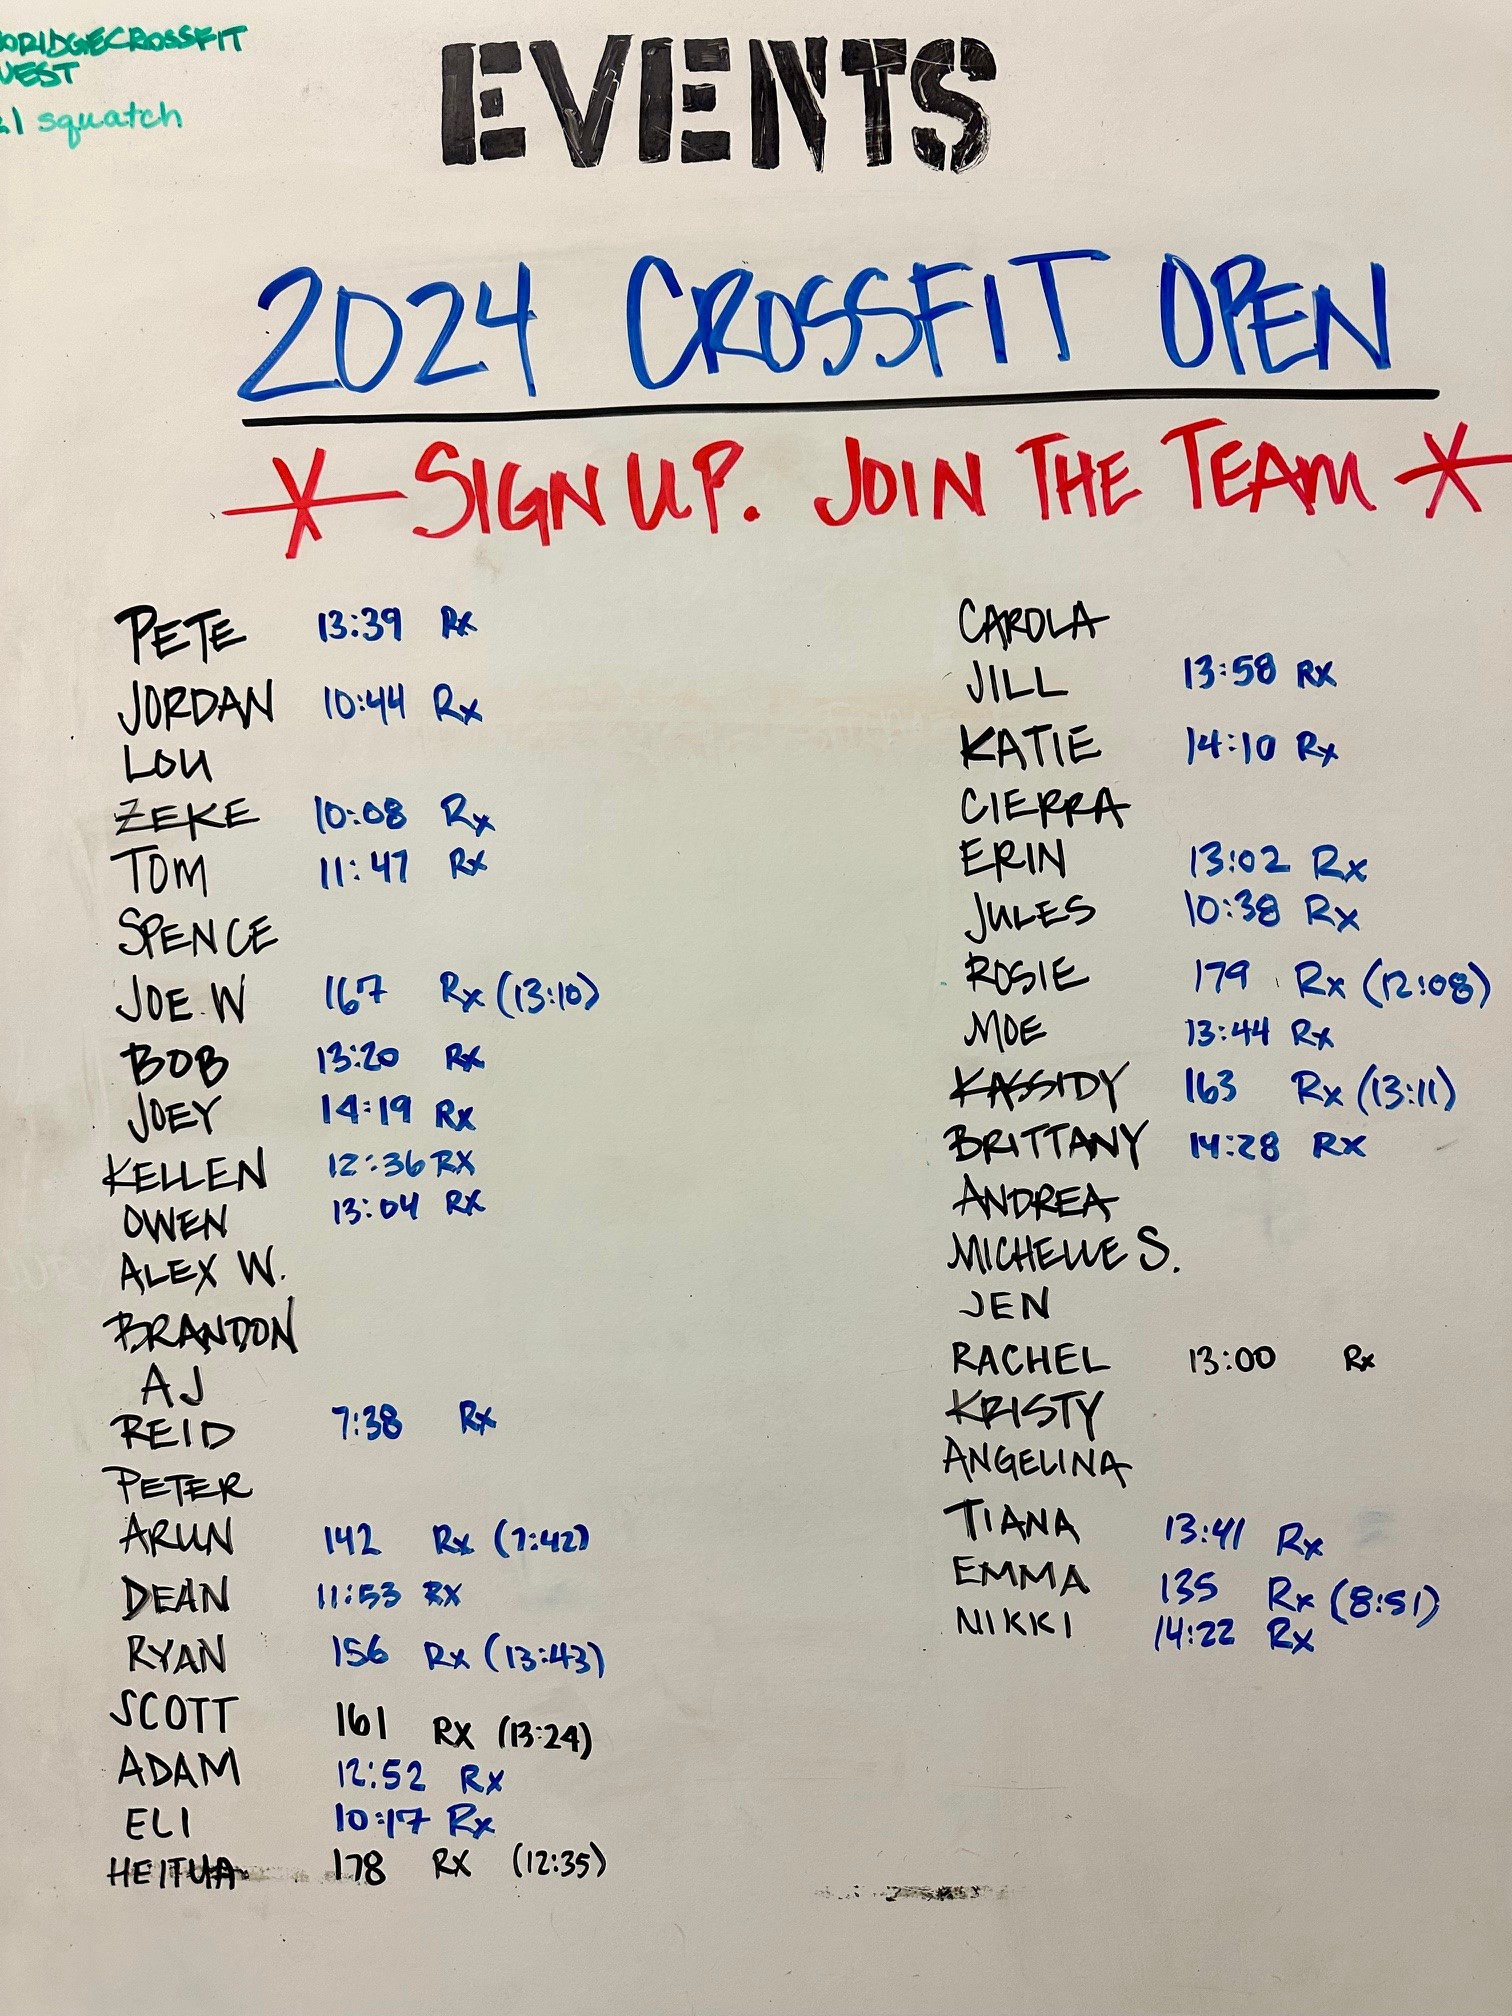 EVENTS
squatch
2024 CROSSFIT OPEN
* SIGN UP. JOIN THE TEAM *
PETE 13:39 Rx
JORDAN 10:44 Rx
LOU
ZEKE 10:08 Rx
TOM 11:47 Rx
SPENCE
JOE W 167 Rx (13:10)
BOB 13:20 Rx
JOEY 14:19 Rx
KELLEN 12:36 RX
OWEN 13:04 RX
ALEX W.
BRANDON
AJ
REID 7:38 Rx
PETER
ARUN 142 Rx (7:42)
DEAN 11:53 RX
RYAN 156 Rx (13:43)
SCOTT 161 RX (13:24)
ADAM 12:52 Rx
ELI 10:17 Rx
HEITUA 178 RX (12:35)
CAROLA
JILL 13:58 RX
KATIE 14:10 Rx
CIERRA
ERIN 13:02 Rx
JULES 10:38 Rx
ROSIE 179 Rx (12:08)
MOE 13:44 Rx
KASSIDY 163 Rx (13:11)
BRITTANY 14:28 RX
ANDREA
MICHELLE S.
JEN
RACHEL 13:00 Rx
KRISTY
ANGELINA
TIANA 13:41 Rx
EMMA 135 Rx (8:51)
NIKKI 14:22 Rx